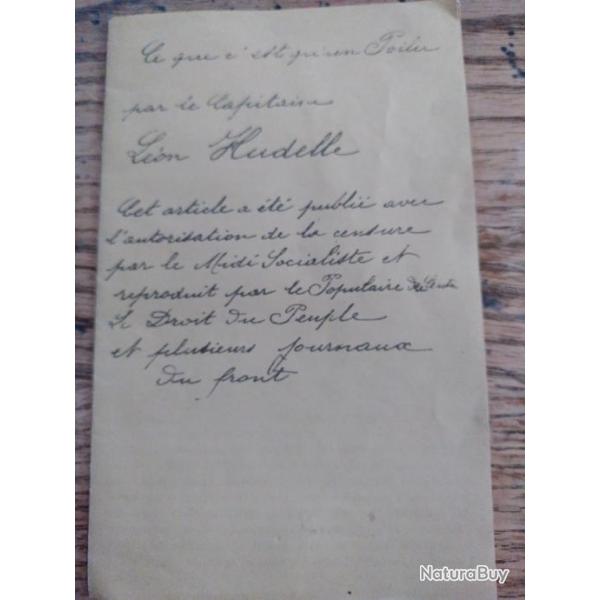 Ce que c'est qu'un Poilu
par le Capitaine
Léon Hudelle
Cet article a été publié avec
l'autorisation de la censure
par le Midi Socialiste et
reproduit par le Populaire du
Le Droit du Peuple
et plusieurs journaux
du front
NaturaBuy